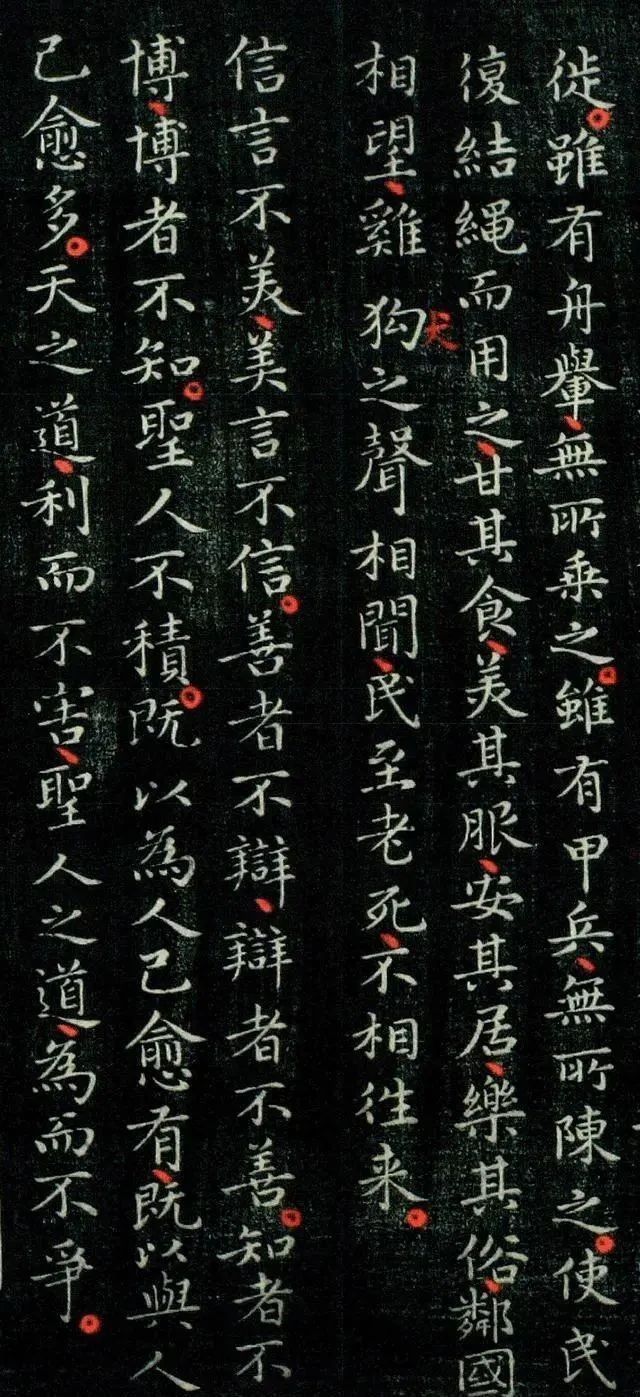 徙雖有舟轝無所乗之雖有甲兵無所陳之使民
復結繩而用之甘其食美其服安其居樂其俗鄰國
相望雞狗之聲相聞民至老死不相往来
犬
信言不美美言不信善者不辯辯者不善知者不
博博者不知聖人不積既以為人己愈有既以與人
己愈多天之道利而不害聖人之道為而不爭